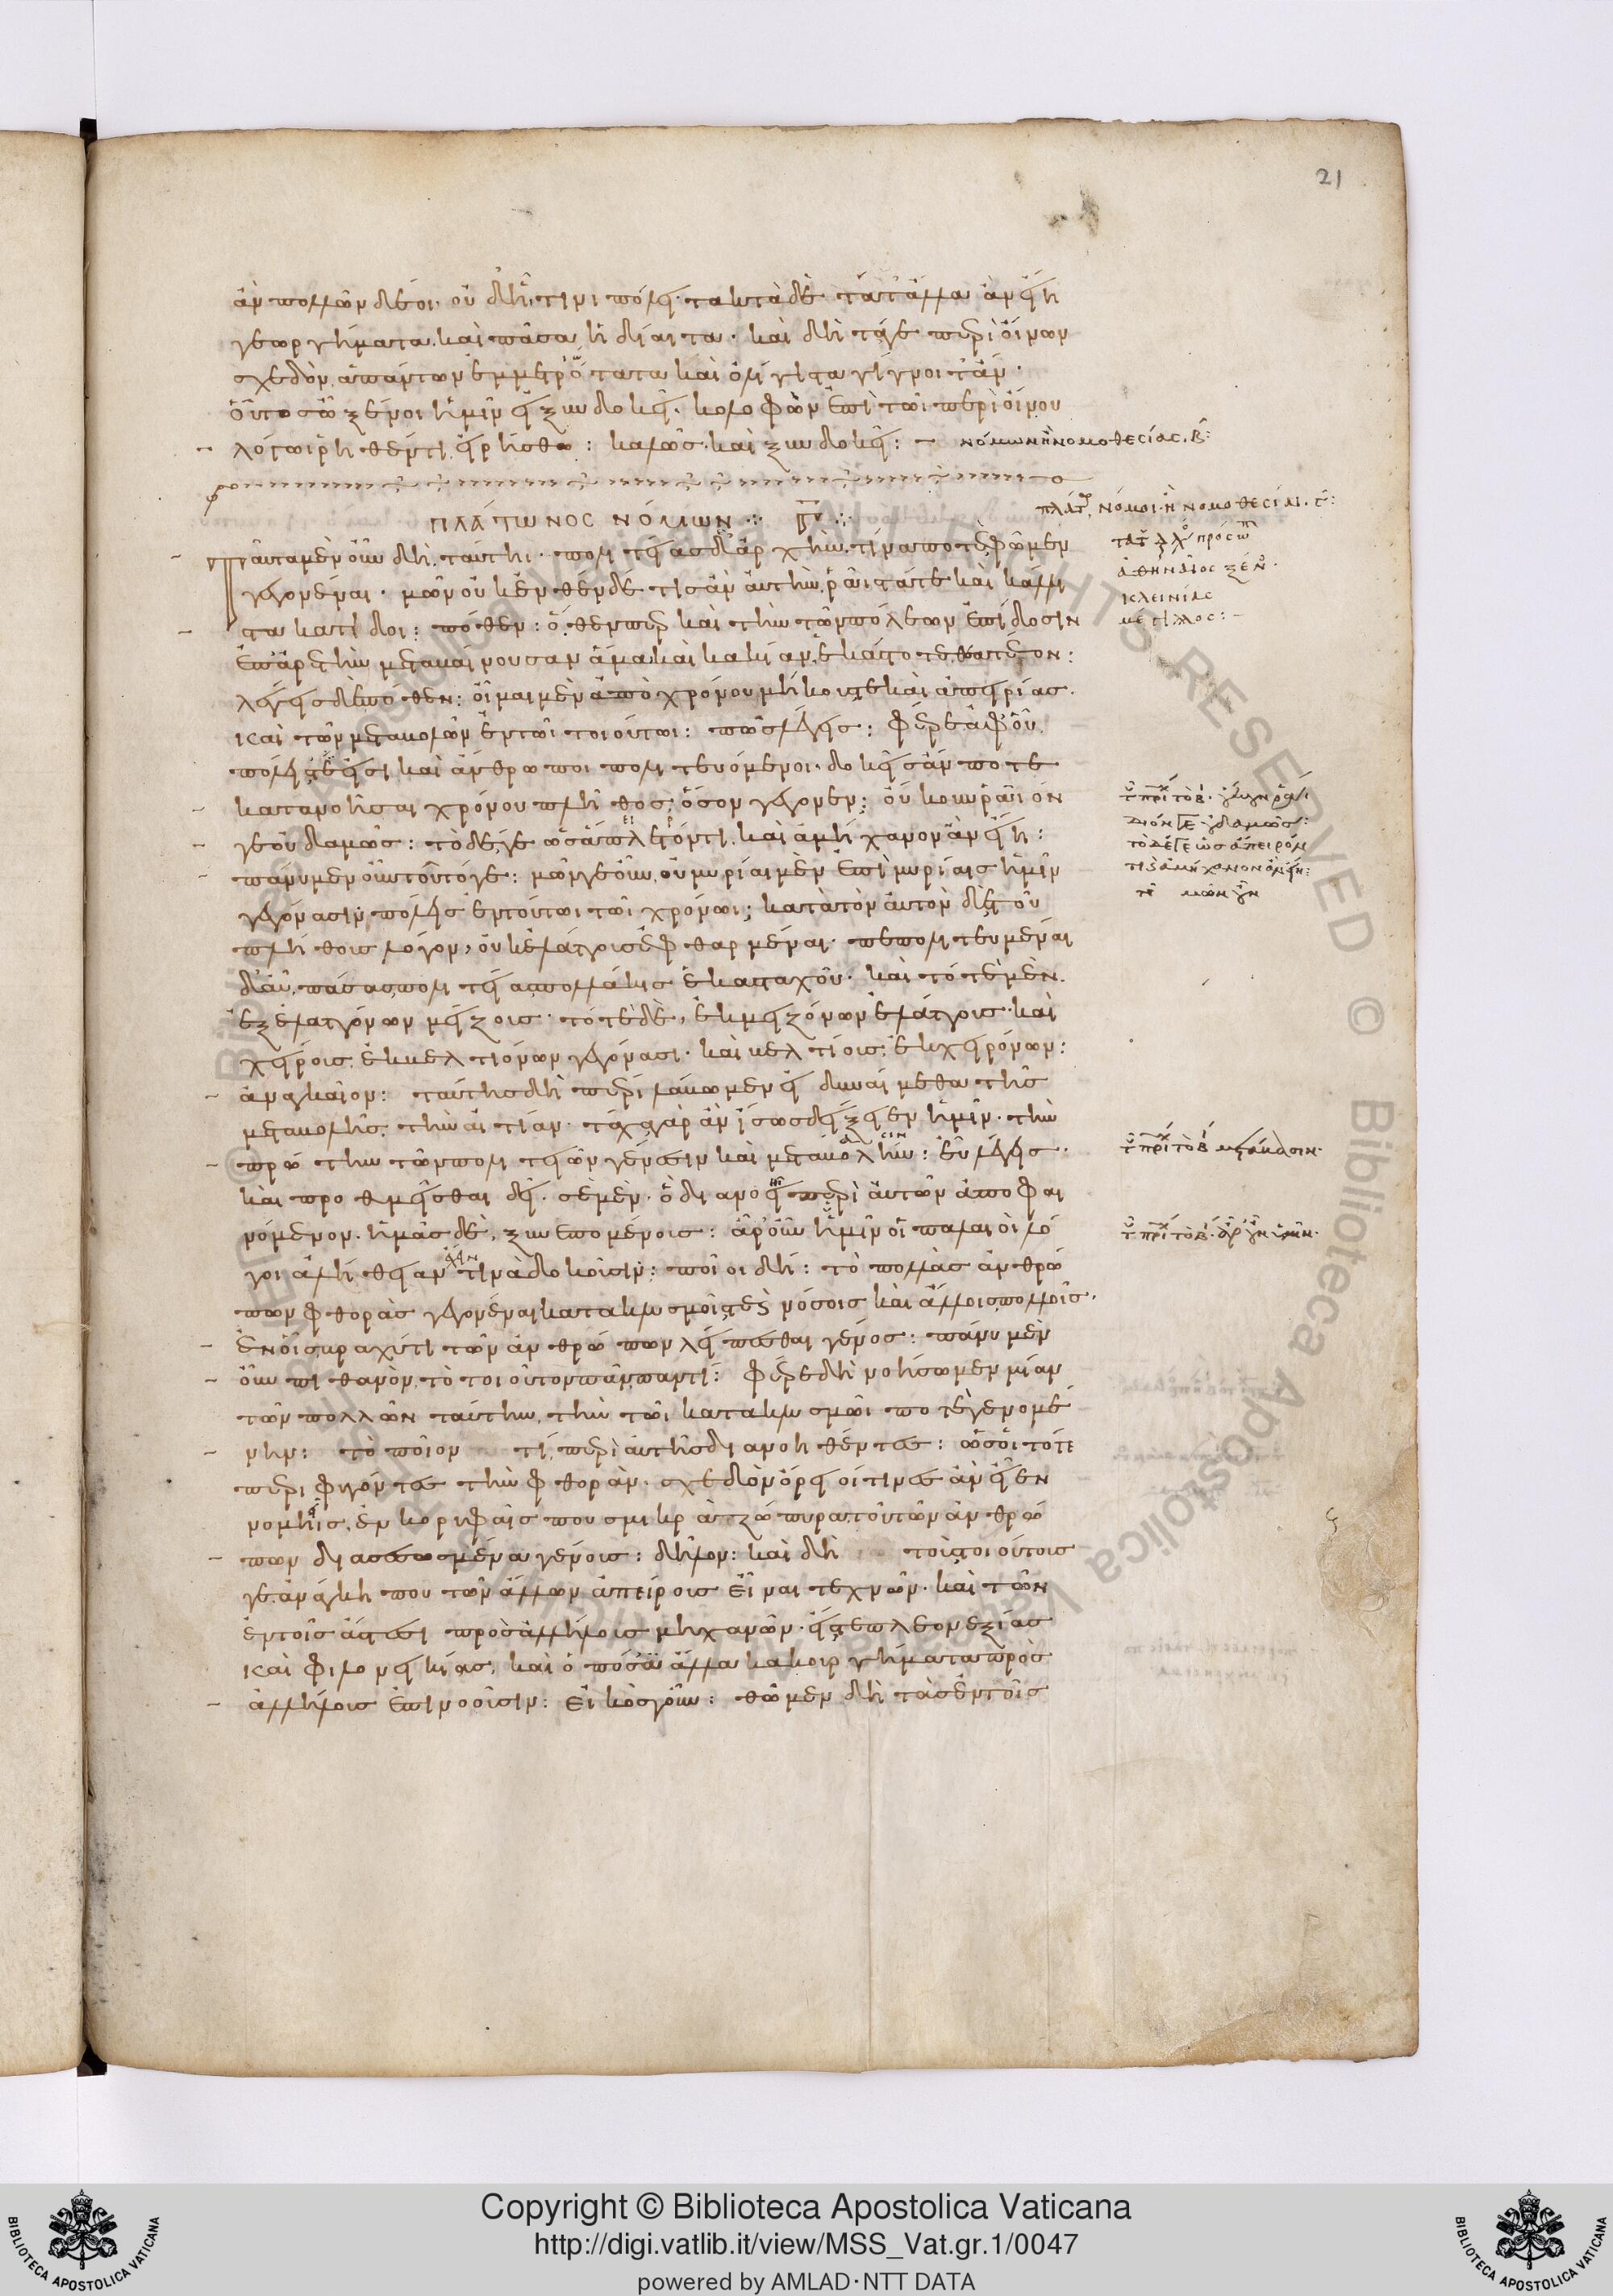 21
ἀμπολλῶν δέοι· οὐδ᾽ ἥτινι πόλει· τακτὰ δὲ τά τ᾽ ἄλλα ἂν εἴη
γεωργήματα, καὶ πᾶσα ἡ δίαιτα· καὶ δὴ τά γε περὶ οἶνον
σχεδὸν ἁπάντων ἐμμετρότατα καὶ ὀλίγιστα γίγνοιτ᾽ ἄν·
οὗτος ὦ ξένοι ἡμῖν εἰ ξυνδοκεῖ, κολοφὼν ἐπὶ τῶι περὶ οἴνου
λόγωι ῥηθέντι εἰρήσθω: καλῶς· καὶ ξυνδοκεῖ:
νόμων ἢ νομοθεσίας. β̄:
πλάτ νόμοι· ἢ νομοθεσίαι· γ̄:
ΠΛΑΤΩΝΟC ΝΟΜΩΝ Γ
Ταῦτα μὲν οὖν δὴ ταύτηι· πολιτείας δ᾽ ἀρχὴν τίνα ποτὲ φῶμεν
γεγονέναι· μῶν οὐκ ἐνθένδε τις ἂν αὐτὴν ῥᾶιστά τε καὶ κάλλι
στα κατίδοι: πόθεν: ὅθενπερ καὶ τὴν τῶν πόλεων ἐπίδοσιν
ἐπ᾽ ἀρετὴν μεταβαίνουσαν ἅμα καὶ κακίαν, ἑκάστοτε θεατέον:
λέγεις δὲ πόθεν: οἶμαι μὲν ἀπὸ χρόνου μήκους τε καὶ ἀπειρίας·
καὶ τῶν μεταβολῶν ἐν τῶι τοιούτωι: πῶς λέγεις: φέρε ἀφ᾽ οὗ
πόλεις τέ εἰσι καὶ ἄνθρωποι πολιτευόμενοι· δοκεῖς ἄν ποτε
κατανοῆσαι χρόνου πλῆθος ὅσον γέγονεν: οὔκουν ῥάιδιόν
γε οὐδαμῶς: τὸ δέ γε ὡς ἄπλετόν τι καὶ ἀμήχανον ἂν εἴη:
πάνυ μὲν οὖν τοῦτό γε: μῶν γε οὖν, οὐ μυρίαι μὲν ἐπὶ μυρίαις ἡμῖν
γεγόνασιν πόλεις ἐν τούτωι τῶι χρόνωι; κατὰ τὸν αὐτὸν δὲ τοῦ
πλήθους λόγον, οὐκ ἐλάττους ἐφθαρμέναι· πεπολιτευμέναι
δ᾽ αὖ, πάσας πολιτείας πολλάκις ἑκασταχοῦ· καὶ τότε μὲν
ἐξ ἐλαττόνων μείζους· τότε δὲ, ἐκ μειζόνων ἐλάττους· καὶ
χείρους, ἐκ βελτιόνων γεγόνασι· καὶ βελτίους, ἐκ χειρόνων:
ἀναγκαῖον: ταύτης δὴ πέρι λάβωμεν εἰ δυναίμεθα τῆς
μεταβολῆς τὴν αἰτίαν· τάχα γὰρ ἂν ἴσως δείξειεν ἡμῖν· τὴν
πρώτην τῶν πολιτειῶν γένεσιν καὶ μεταβολήν: εὖ λέγεις·
καὶ προθυμεῖσθαι δεῖ· σὲ μὲν, ὃ διανοεῖ περὶ αὐτῶν ἀποφαι
νόμενον· ἡμᾶς δὲ, ξυνεπομένους: ἆρ᾽ οὖν ὑμῖν οἱ παλαιοὶ λό
γοι ἀλήθειαν τινὰ δοκοῦσιν: ποῖοι δή: τὸ πολλὰς ἀνθρώ
πων φθορὰς γεγονέναι κατακλυσμοῖς τε καὶ νόσοις καὶ ἄλλοις πολλοῖς,
ἐν οἷς βραχύ τι τῶν ἀνθρώπων λείπεσθαι γένος: πάνυ μὲν
οὖν πιθανὸν τὸ τοιοῦτον πᾶν παντί: φέρε δὴ νοήσωμεν μίαν
τῶν πολλῶν ταύτην, τὴν τῶι κατακλυσμῶι ποτὲ γενομέ
νην: τὸ ποῖον τί περὶ αὐτῆς διανοηθέντες: ὡς οἱ τότε
περιφυγόντες τὴν φθορὰν· σχεδὸν ὄρειοί τινες ἂν εἶεν
νομῆς, ἐν κορυφαῖς που σμικρὰ ζώπυρα τοῦ τῶν ἀνθρώ
πων διασεσωσμένα γένους: δῆλον: καὶ δὴ τοὺς τοιούτους
γε ἀνάγκη που τῶν ἄλλων ἀπείρους εἶναι τεχνῶν· καὶ τῶν
ἐν τοῖς ἄστεσι πρὸς ἀλλήλους μηχανῶν· εἴς τε πλεονεξίας
καὶ φιλονεικίας, καὶ ὁπόσ᾽ ἄλλα κακουργήματα πρὸς
ἀλλήλους ἐπινοοῦσιν: εἰκὸς γοῦν: θῶμεν δὴ τὰς ἐν τοῖς
ἀθηναῖος ξέν
κλεινίας
μέγιλλος:
Copyright © Biblioteca Apostolica Vaticana
http://digi.vatlib.it/view/MSS_Vat.gr.1/0047
powered by AMLAD·NTT DATA
BIBLIOTECA APOSTOLICA VATICANA
BIBLIOTECA APOSTOLICA VATICANA